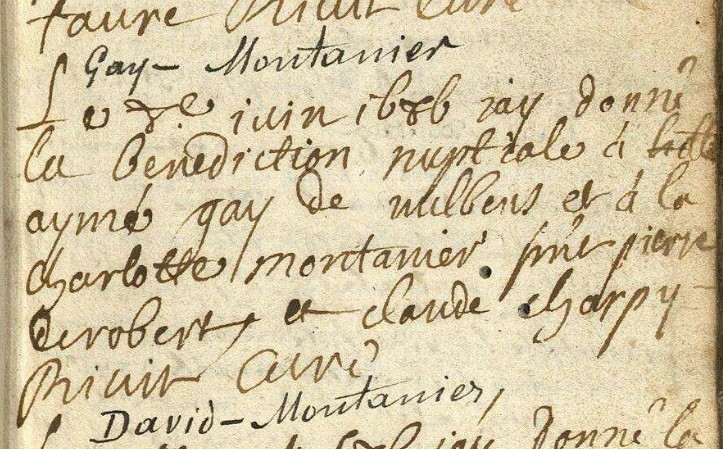 faure Riuit Curé
Gay - Montanier
Le 7e iuin 1686 iay donné
la benediction nuptiale á
aymé gay de vulbens et á la
charlotte montanier pnt pierre
derobert et claude charpy
Riuit Curé
David - Montanier,
iay donné la